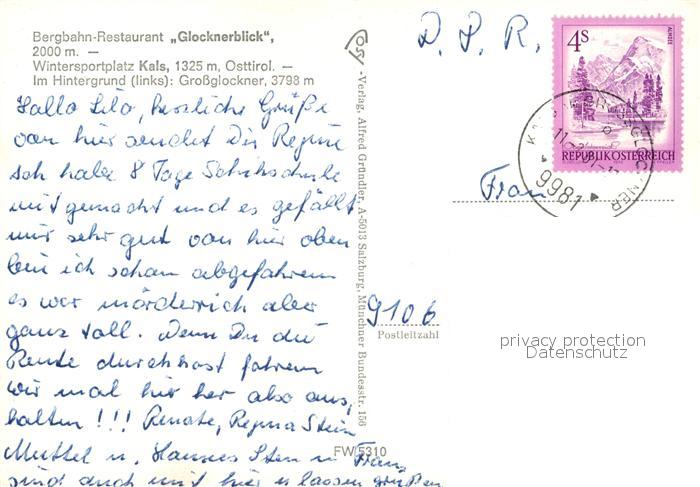 Bergbahn-Restaurant „Glocknerblick“,
2000 m. —
Wintersportplatz Kals, 1325 m, Osttirol. —
Im Hintergrund (links): Großglockner, 3798 m
Hallo Lilo, herzliche Grüße
von hier sendet Dir Regina
ich habe 8 Tage Schischule
mit gemacht und es gefällt
mir sehr gut von hier oben
bin ich schon abgefahren
es war mörderrich aber
ganz toll. Wenn Du die
Rente durchhast fahren
wir mal hier her also aus,
halten !!! Renate, Regina Stein
Muttel u. Hannes
sind auch mit hier u lassen grüßen
-Verlag, Alfred Gründler, A-5013 Salzburg, Münchner Bundesstr. 156
FW 5310
D. D. R.
4 S
ALMSEE
REPUBLIK ÖSTERREICH
GLOCKNER
9981
Frau
9106
Postleitzahl
privacy protection
Datenschutz